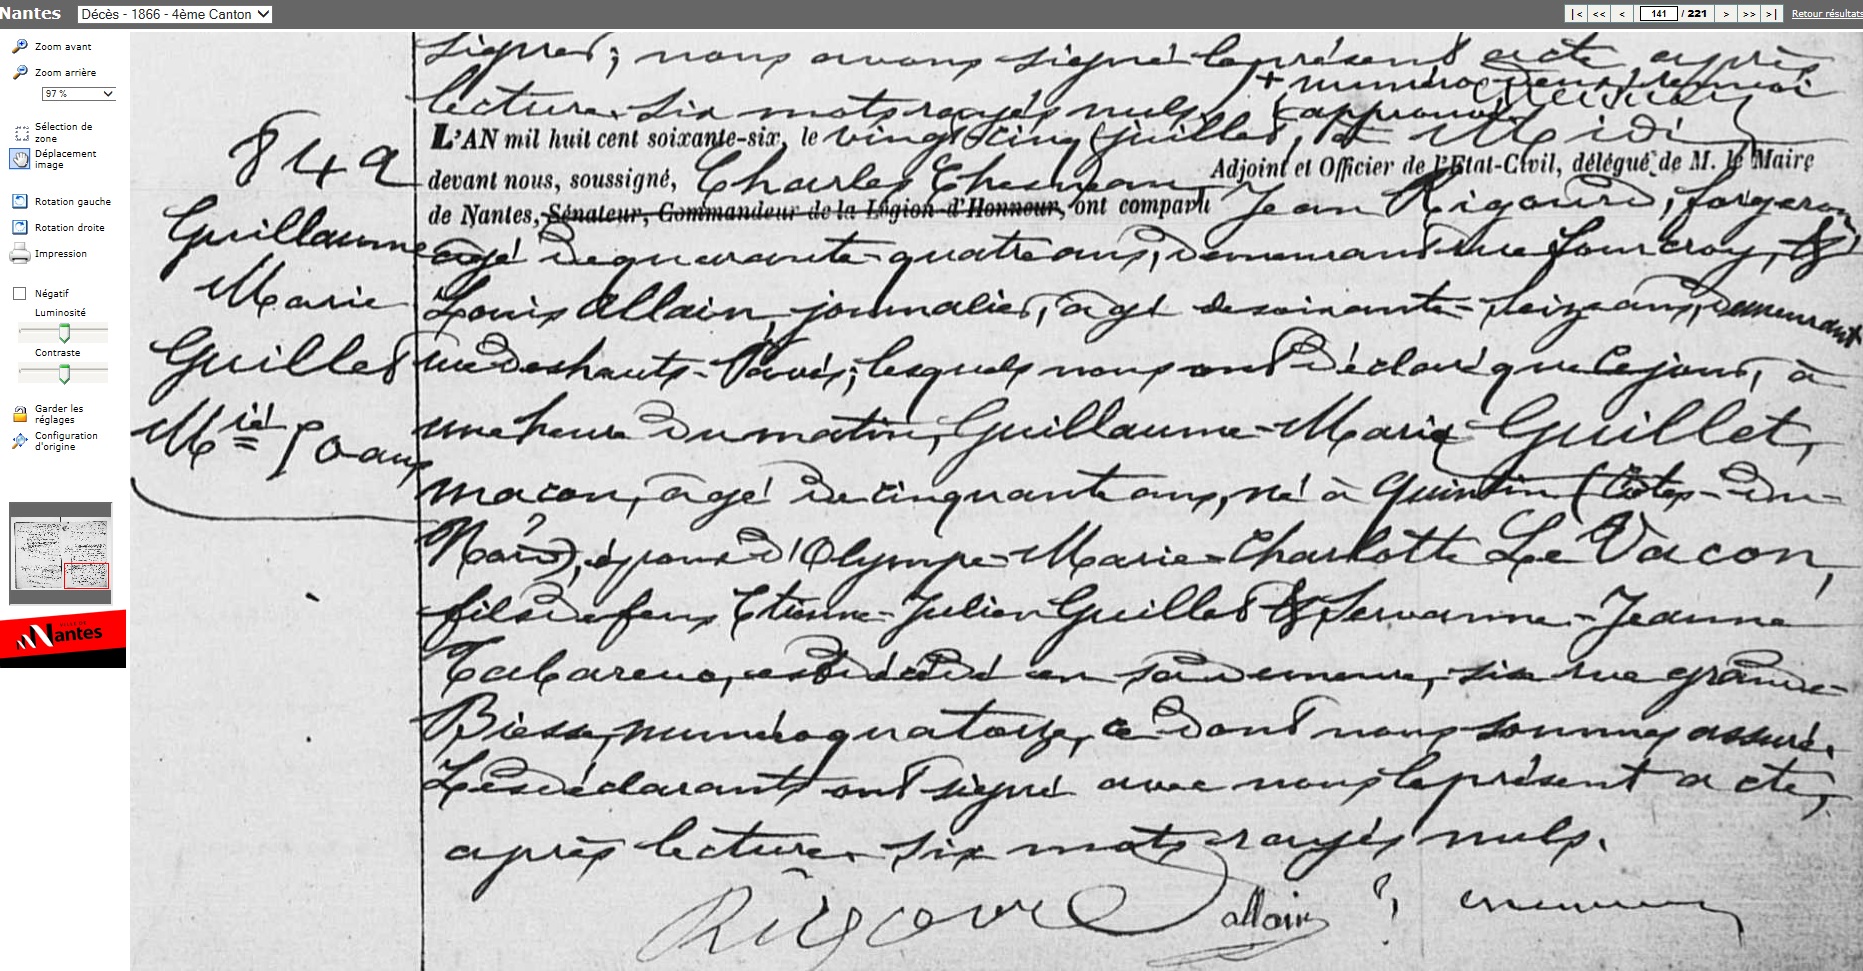 Nantes
Décès - 1866 - 4ème Canton
|< << < 141 / 221 > >> >|
Retour résultats
Zoom avant
Zoom arrière
97 %
Sélection de
zone
Déplacement
image
Rotation gauche
Rotation droite
Impression
Négatif
Luminosité
Contraste
Garder les
réglages
Configuration
d'origine
Nantes
849
Guillaume
Marie
Guillet
Mié 50 ans
signer; nous avons signé le présent acte après
+ numéro deux, renvoi
lecture. six mots rayés nuls. approuvé
L'AN mil huit cent soixante-six, le vingt cinq Juillet, à Midi
devant nous, soussigné, Charles Adjoint et Officier de l'Etat-Civil, délégué de M. le Maire
de Nantes, Sénateur, Commandeur de la Légion d'Honneur, ont comparu Jean Rigourd, forgeron,
âgé de quarante-quatre ans, demeurant rue Fourcroy, &
Louis Allain, journalier, âgé de soixante-seize ans, demeurant
rue des hauts-Pavés; lesquels nous ont déclaré que ce jour, à
une heure du matin, Guillaume-Marie Guillet,
macon, âgé de cinquante ans, né à Quintin (Côtes-du-
Nord), époux d'Olympe-Marie-Charlotte Le Vacon,
fils de feus Etienne-Julien Guillet & Servanne-Jeanne
Tabareuc, est décédé en sa demeure, sise rue grande-
Biesse, numéro quatorze, ce dont nous sommes assuré.
Les déclarants ont signé avec nous le présent acte,
après lecture. six mots rayés nuls.
Rigourd allain